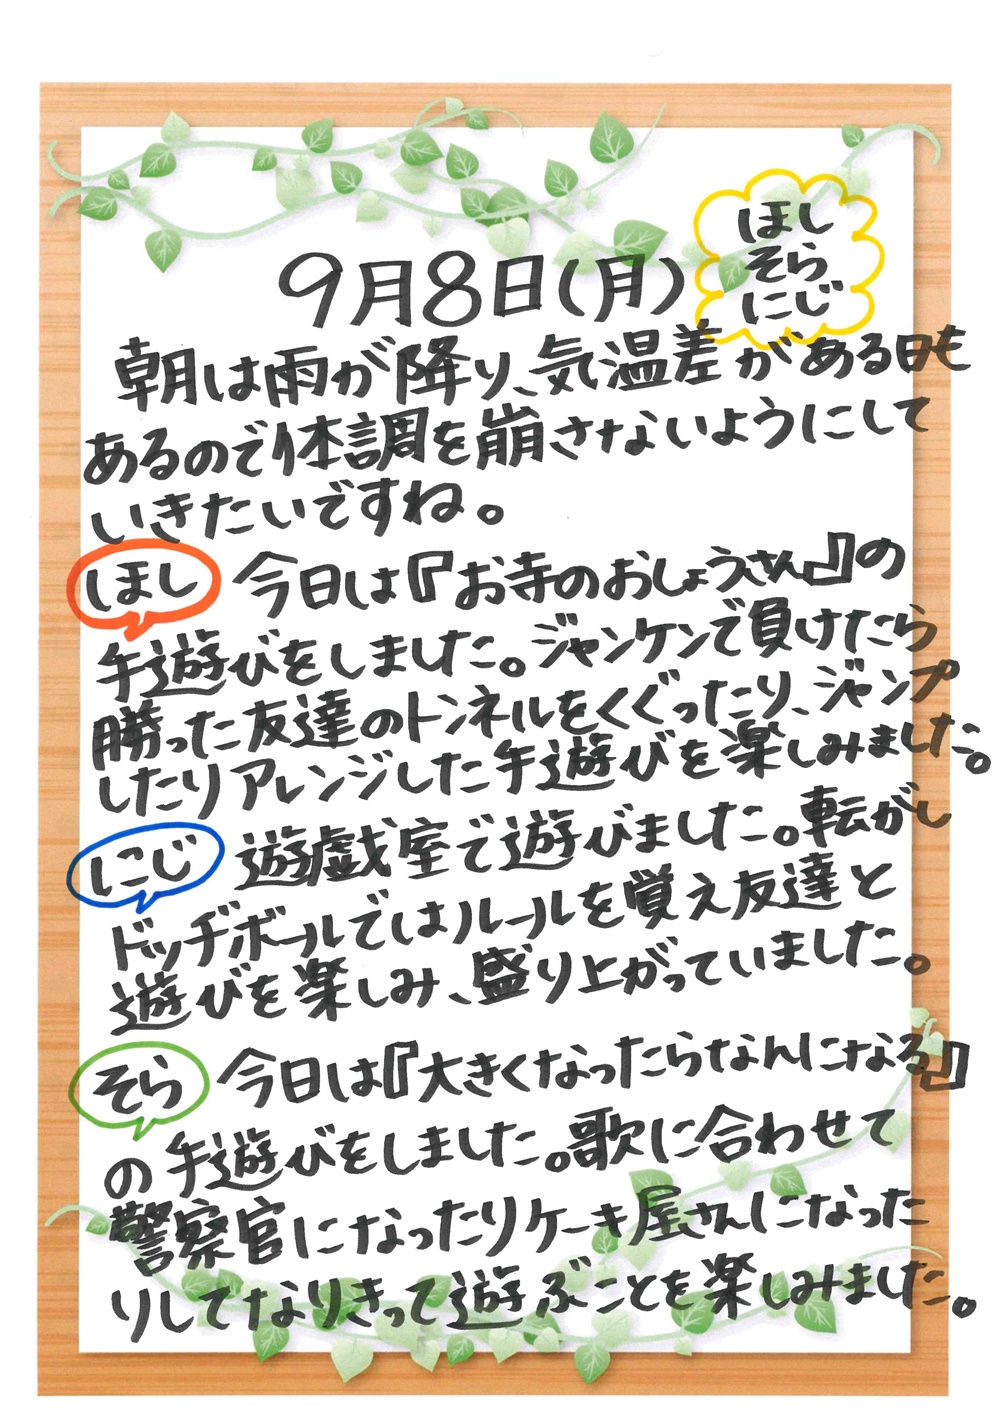 ほし
そら
にじ
9月8日(月)
朝は雨が降り、気温差がある日も
あるので体調を崩さないようにして
いきたいですね。
ほし 今日は『お寺のおしょうさん』の
手遊びをしました。ジャンケンで負けたら
勝った友達のトンネルをくぐったり、ジャンプ
したりアレンジした手遊びを楽しみました。
にじ 遊戯室で遊びました。転がし
ドッヂボールではルールを覚え友達と
遊びを楽しみ、盛り上がっていました。
そら 今日は『大きくなったらなんになる』
の手遊びをしました。歌に合わせて
警察官になったりケーキ屋さんになった
りしてなりきって遊ぶことを楽しみました。